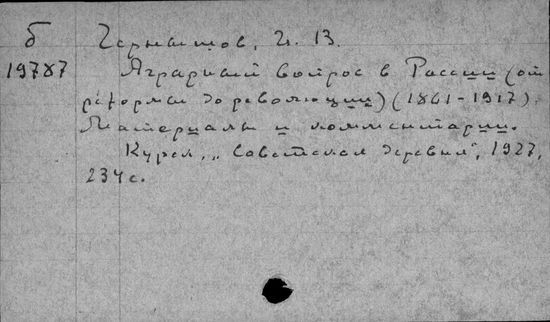 б
19787
Чернышов, И. В.
Аграрный вопрос в России (от
реформы до революции) (1861-1917).
Материалы и комментарии.
Курск, „Советская деревня", 1927,
234 с.